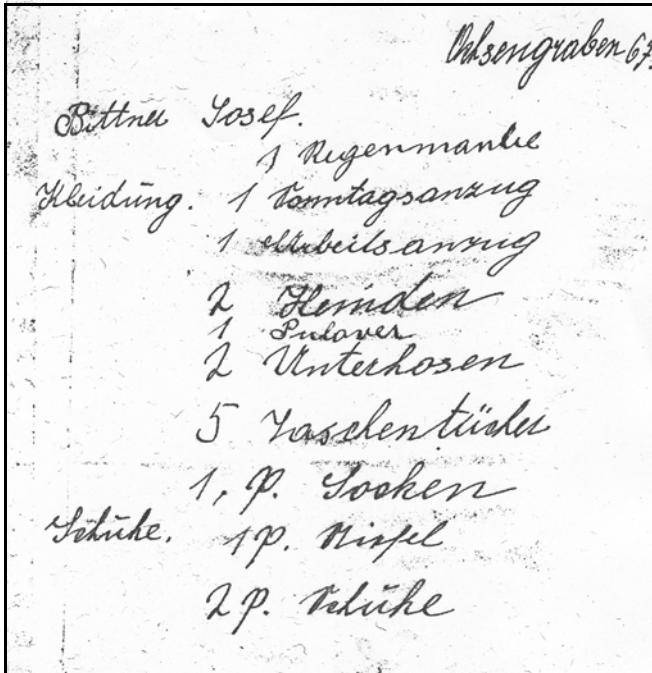 Ochsengraben 67.
Bittner Josef.
1 Regenmantel
Kleidung. 1 Sonntagsanzug
1 Arbeitsanzug
2 Hemden
1 Pulover
2 Unterhosen
5 Taschentücher
1, P. Socken
Schuhe. 1 P. Stiefel
2 P. Schuhe